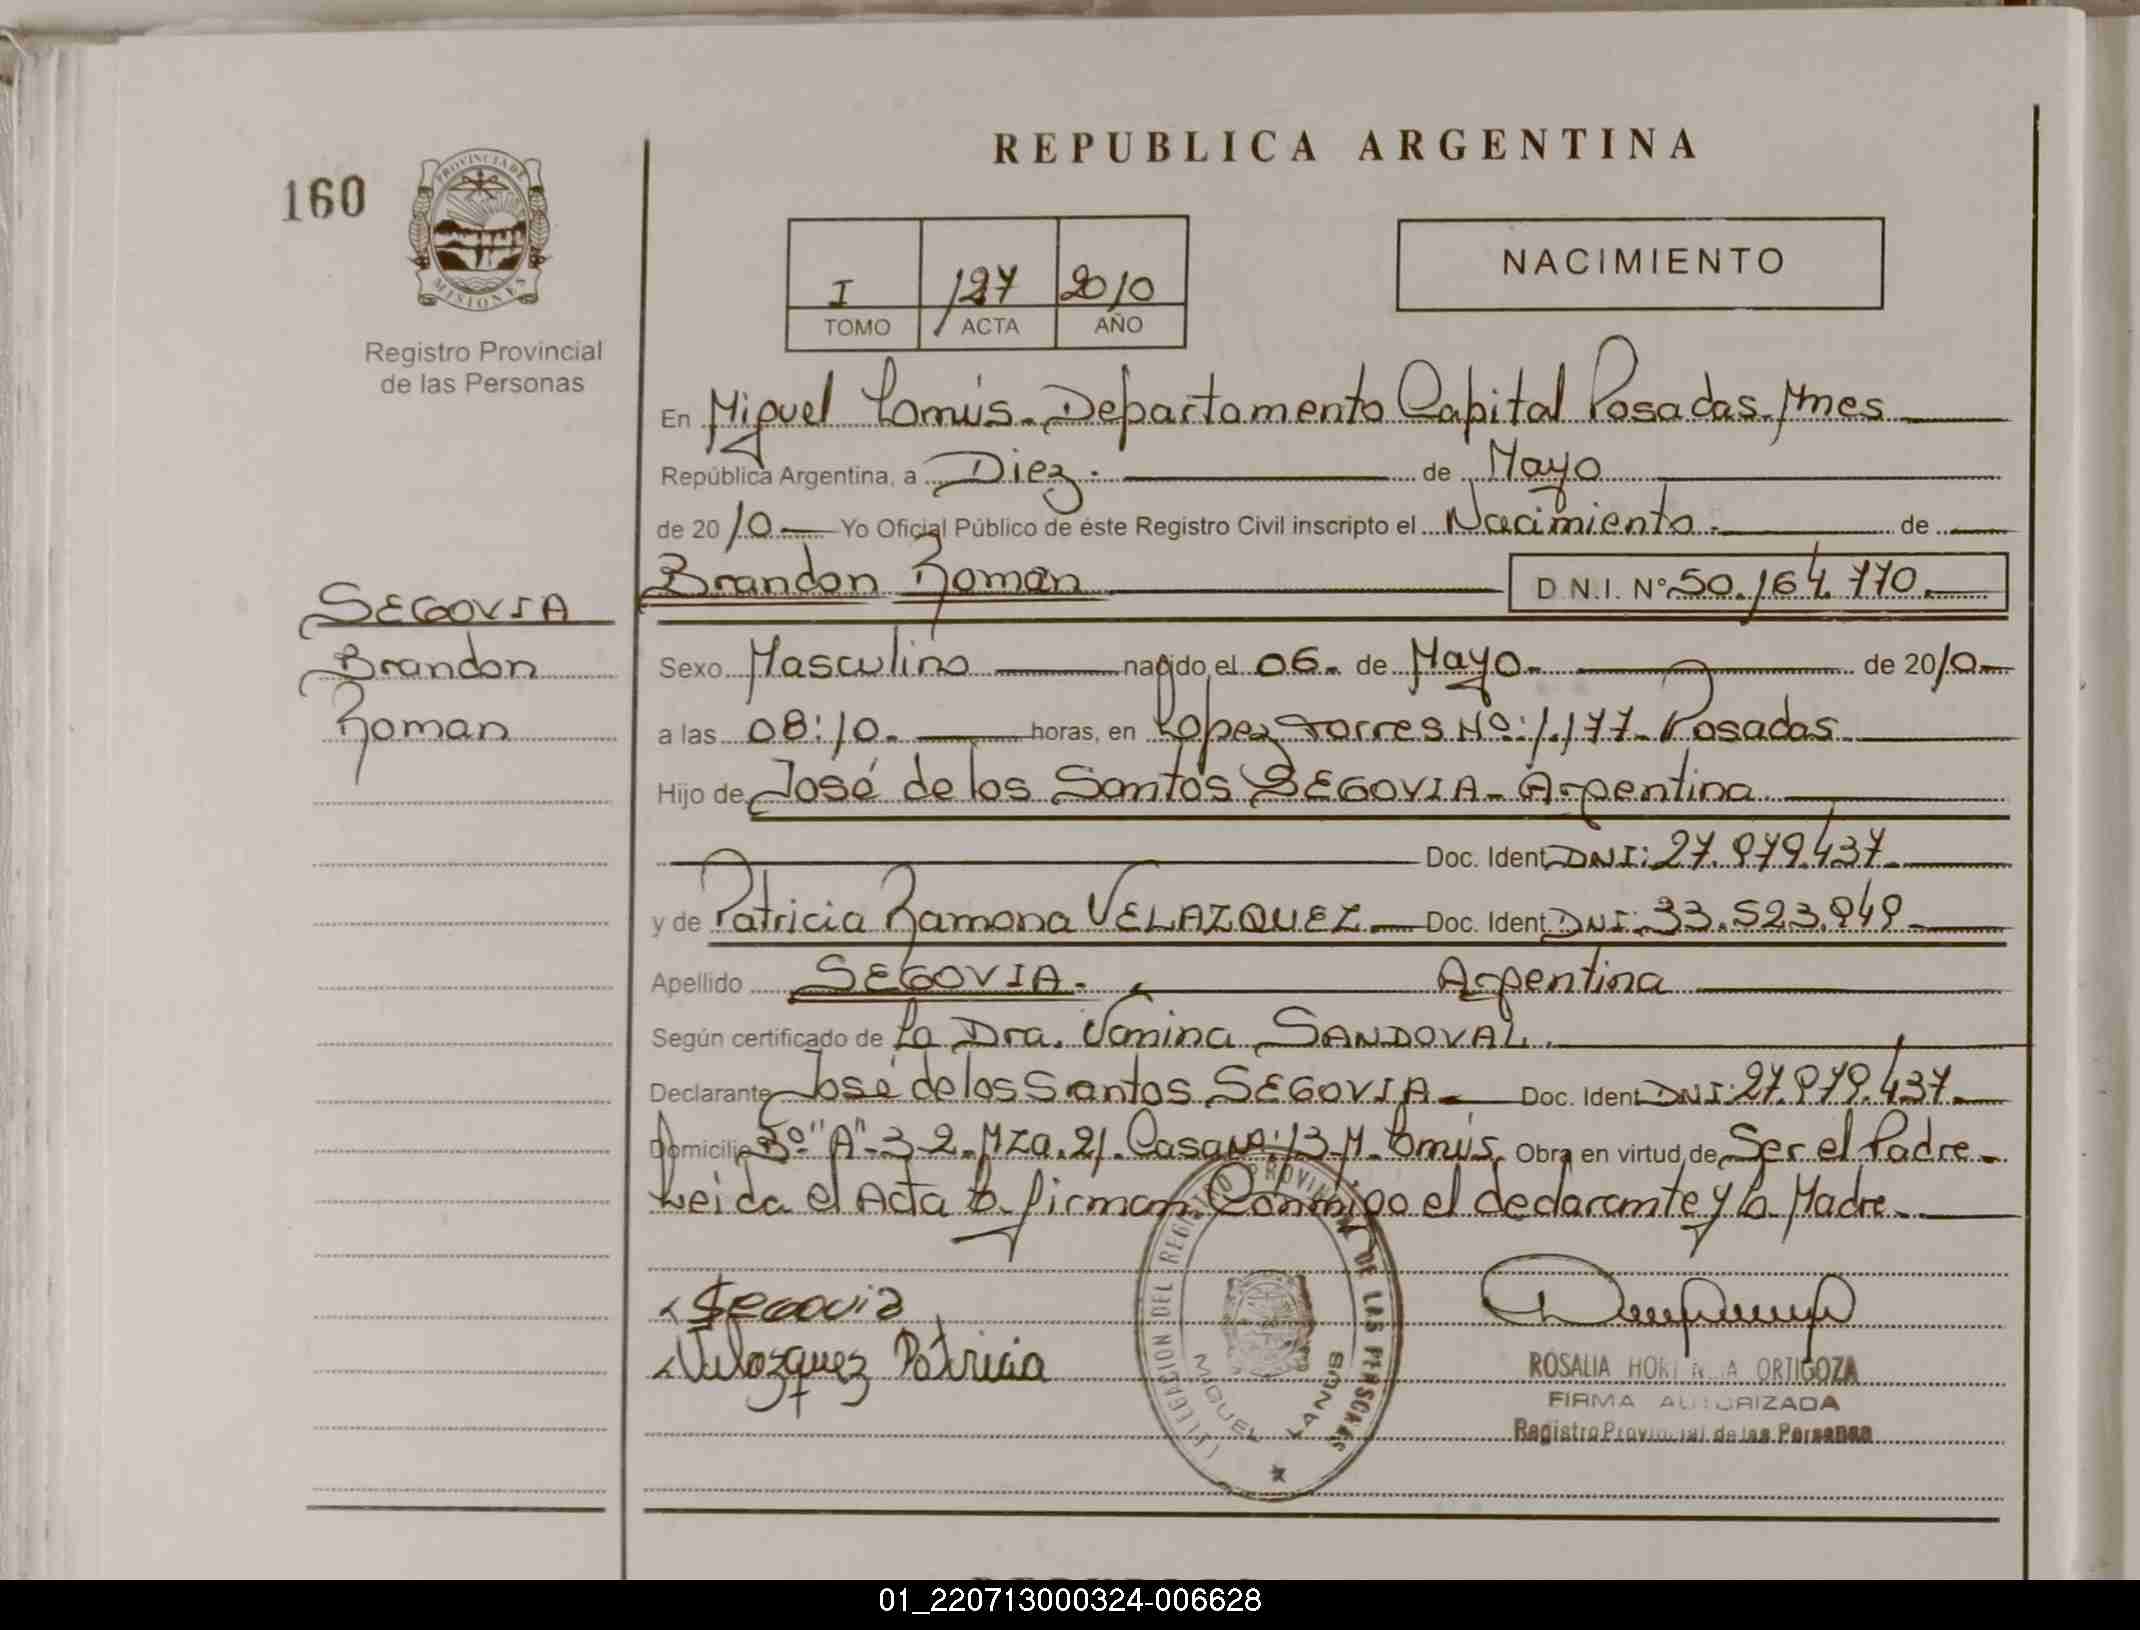 REPUBLICA ARGENTINA
160
PROVINCIA DE
MISIONES
Registro Provincial
de las Personas
NACIMIENTO
I 127 2010
TOMO ACTA AÑO
En Miguel Lanús. Departamento Capital Posadas. Mnes
República Argentina, a Diez. de Mayo
de 2010 Yo Oficial Público de éste Registro Civil inscripto el Nacimiento. de
Brandon Roman D.N.I. Nº 50.164.770.
SEGOVIA
Brandon
Roman
Sexo Masculino nacido el 06. de Mayo. de 2010
a las 08:10. horas, en Lopez Torres Nº: 1.177. Posadas
Hijo de José de los Santos SEGOVIA - Argentina
Doc. Ident. DNI: 27.979.437
y de Patricia Ramona VELAZQUEZ Doc. Ident. DNI: 33.523.949
Apellido SEGOVIA. Argentina
Según certificado de La Dra. Vanina SANDOVAL.
Declarante José de los Santos SEGOVIA Doc. Ident. DNI: 27.979.437
Domicilio Bº "A"-3-2. Mza. 21. Casa Nº: 13 M. Lanús. Obra en virtud de Ser el Padre
Leida el Acta la firman Conmigo el declarante y la Madre
Segovia
Velazquez Patricia
DELEGACION DEL REGISTRO PROVINCIAL DE LAS PERSONAS
MIGUEL LANUS
ROSALIA ORTIGOZA
FIRMA AUTORIZADA
Registro Provincial de las Personas
01_220713000324-006628